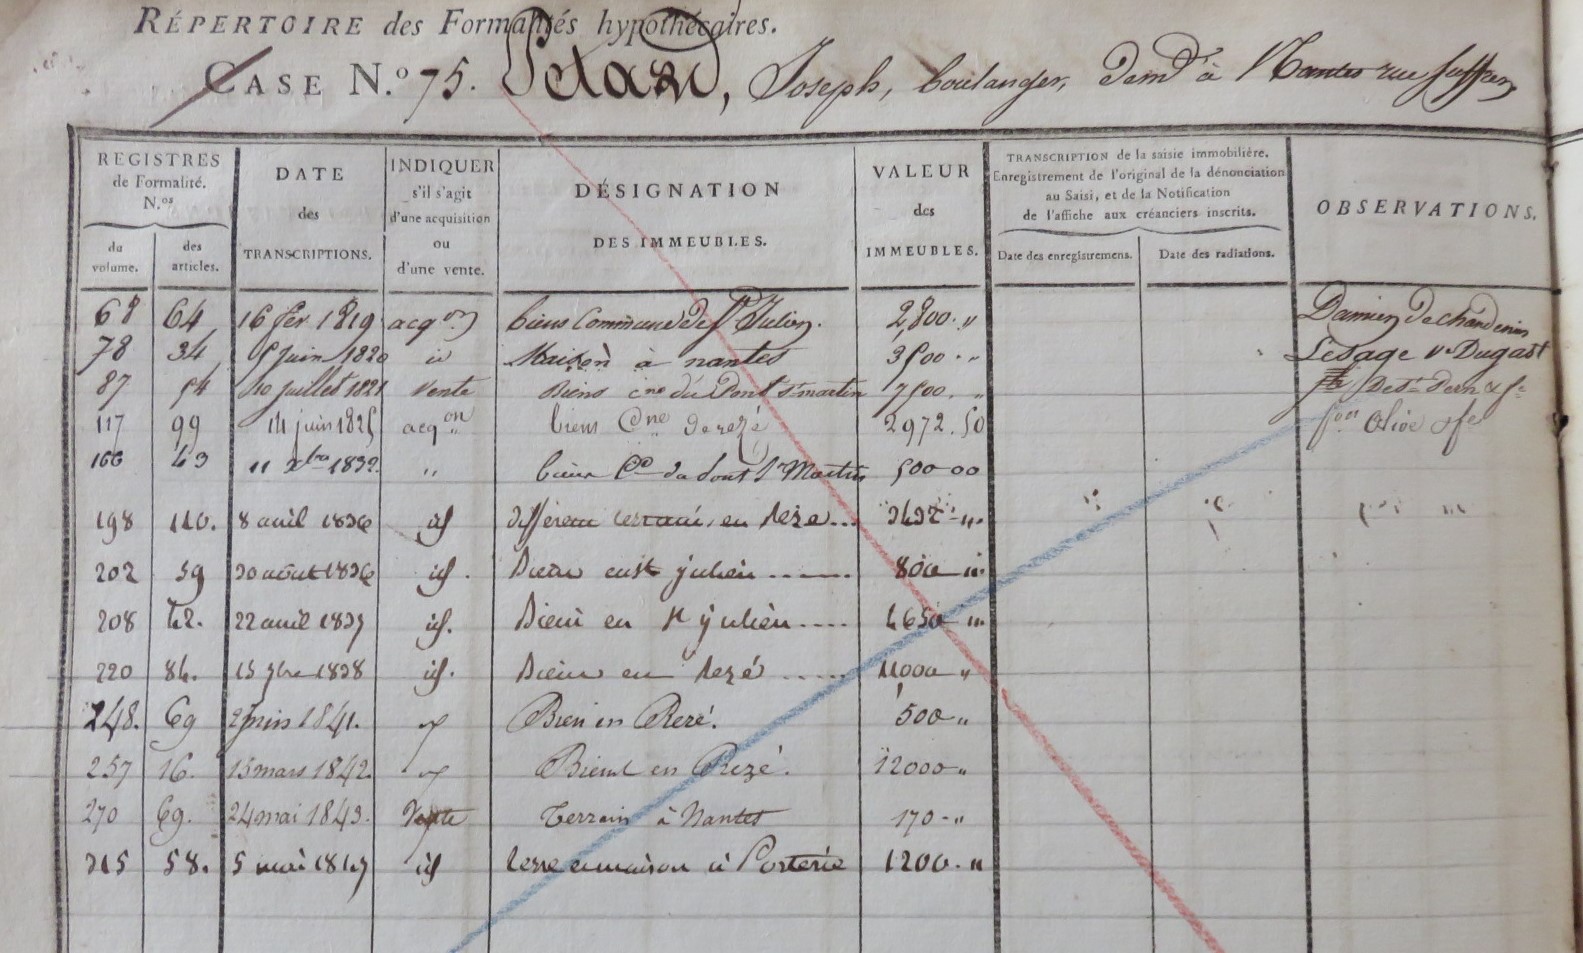 RÉPERTOIRE des Formalités hypothécaires.
CASE N.º 75. Joseph, boulanger, demt à Nantes rue
REGISTRES de Formalité. N.os
du volume.
des articles.
DATE des TRANSCRIPTIONS.
INDIQUER s'il s'agit d'une acquisition ou d'une vente.
DÉSIGNATION DES IMMEUBLES.
VALEUR des IMMEUBLES.
TRANSCRIPTION de la saisie immobilière. Enregistrement de l'original de la dénonciation au Saisi, et de la Notification de l'affiche aux créanciers inscrits.
Date des enregistremens.
Date des radiations.
OBSERVATIONS.
68 64 16 fév. 1819 acqon biens Commune de St Julien. 2,800. "
78 34 juin 1820 id Maison à nantes 3500. " Lesage Ve Dugast
87 54 10 juillet 1821 Vente Biens cne du Pont St martin 7500. "
117 99 14 juin 1825 acqon biens Cne de rezé 2972.50 Olive
166 43 11 Xbre 1832. " biens Cne du Pont St Martin 500 00
198 110. 8 avril 1836 id en rezé...
202 59 30 août 1836 id. Biens en St julien ........ 800 "
208 42. 22 avril 1837 id. Biens en St julien .... 4650 "
220 84. 15 1838 id. Biens en rezé ..... "
248. 69 1841. Bien en Rezé. 500 "
257 16. 15 mars 1842. Biens en Rezé. 12000 "
270 69. 24 mai 1843. Vente Terrain à Nantes 170 - "
315 58. 5 mai 1847 id terre et maison à Porterie 1200. "